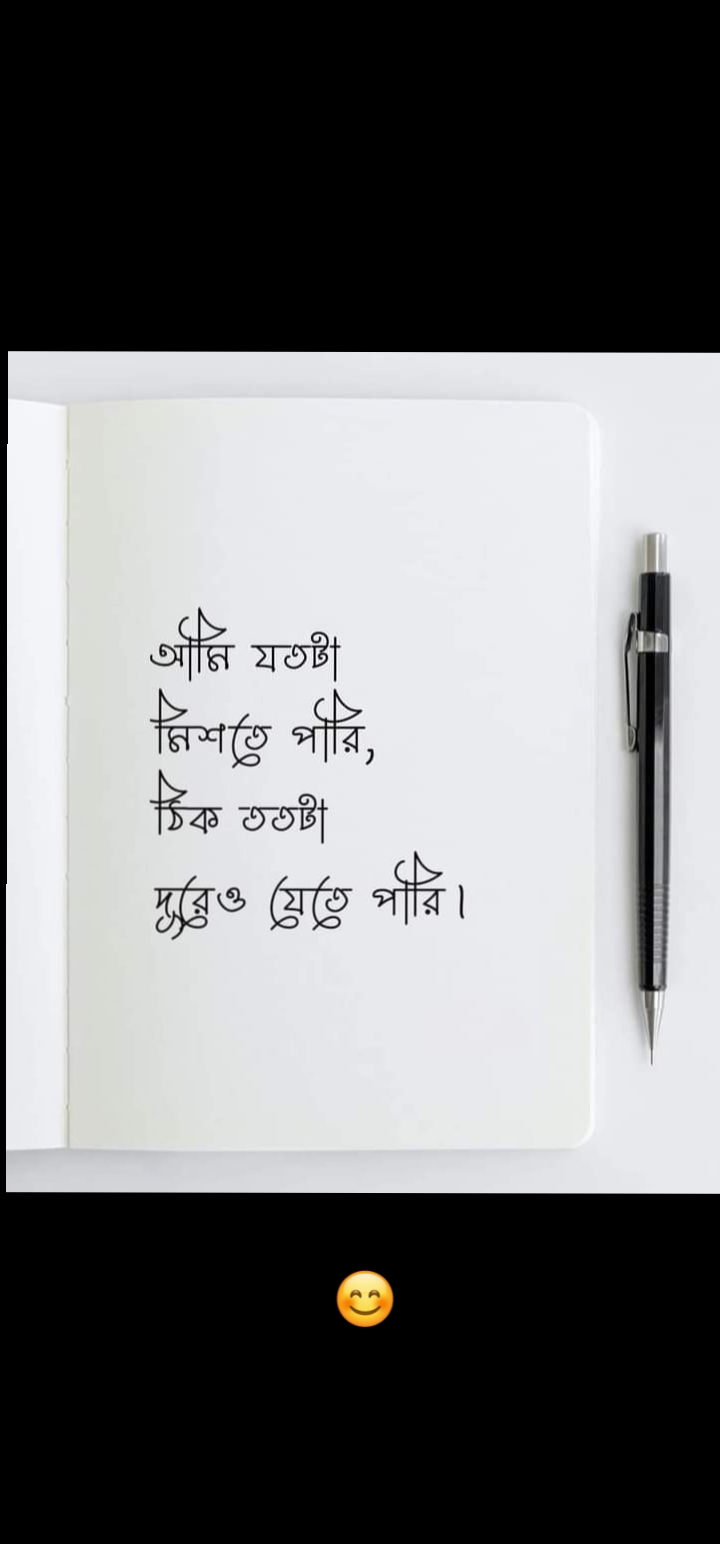 আমি যতটা
মিশতে পারি,
ঠিক ততটা
দূরেও যেতে পারি।
😊